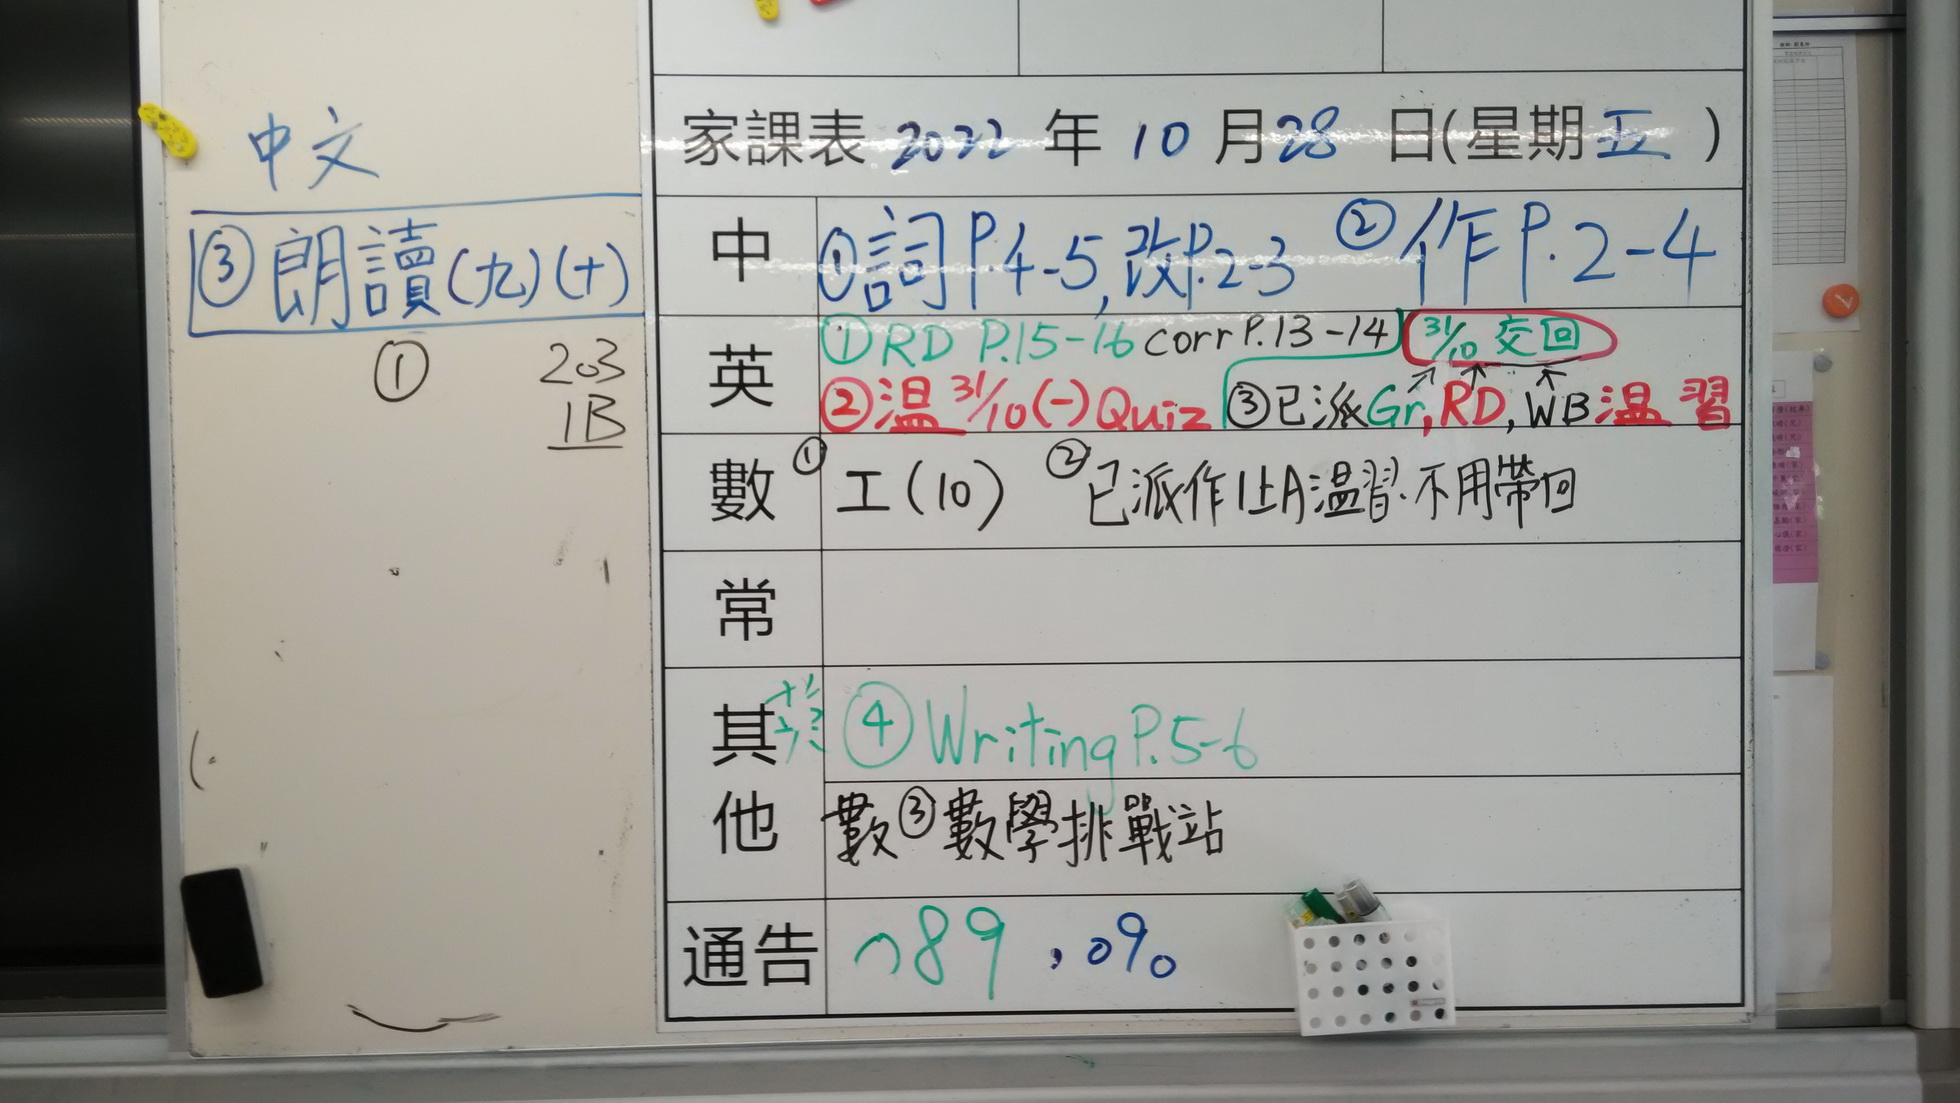 中文
③朗讀(九)(十)
① 203
1B
家課表 2022 年 10 月 28 日(星期五)
中 ①詞P.4-5,改P.2-3 ②作P.2-4
英 ①RD P.15-16 corr P.13-14 31/10 交回
②温31/10(一)Quiz ③已派Gr,RD,WB温習
數 ①工(10) ②已派作1上A温習.不用帶回
常
其他
英 ④Writing P.5-6
數③數學挑戰站
通告 089,090